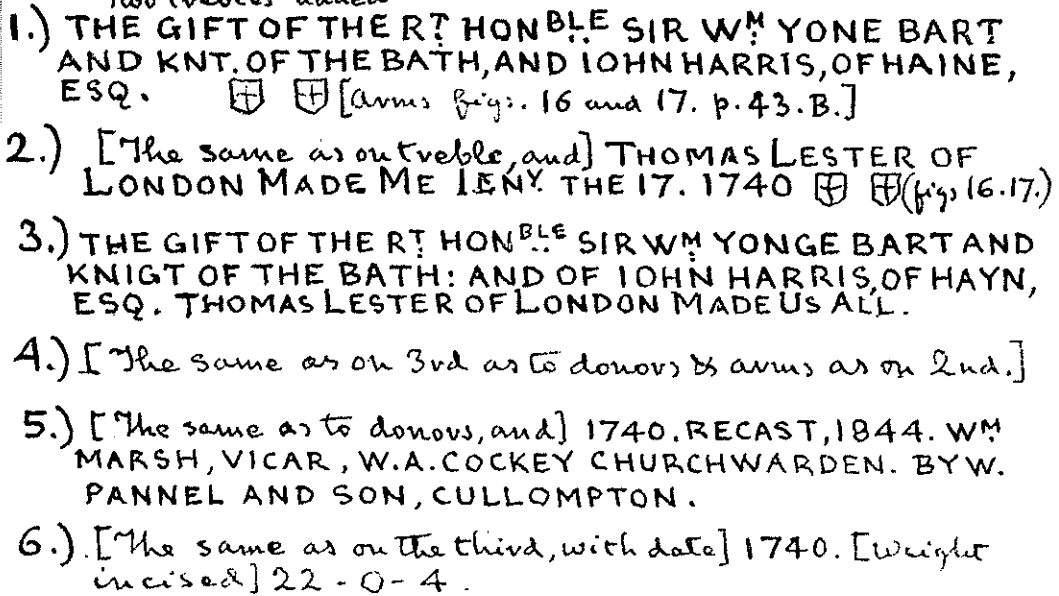 1.) THE GIFT OF THE RT HONBLE SIR WM YONE BART
AND KNT. OF THE BATH, AND IOHN HARRIS, OF HAINE,
ESQ. [arms figs. 16 and 17. p. 43. B.]
2.) [The same as on treble, and] THOMAS LESTER OF
LONDON MADE ME IENY. THE 17. 1740 (figs 16.17.)
3.) THE GIFT OF THE RT HONBLE SIR WM YONGE BART AND
KNIGT OF THE BATH: AND OF IOHN HARRIS, OF HAYN,
ESQ. THOMAS LESTER OF LONDON MADE US ALL.
4.) [The same as on 3rd as to donors & arms as on 2nd.]
5.) [The same as to donors, and] 1740. RECAST, 1844. WM
MARSH, VICAR, W. A. COCKEY CHURCHWARDEN. BY W.
PANNEL AND SON, CULLOMPTON.
6.) [The same as on the third, with date] 1740. [Weight
incised] 22 - 0 - 4.